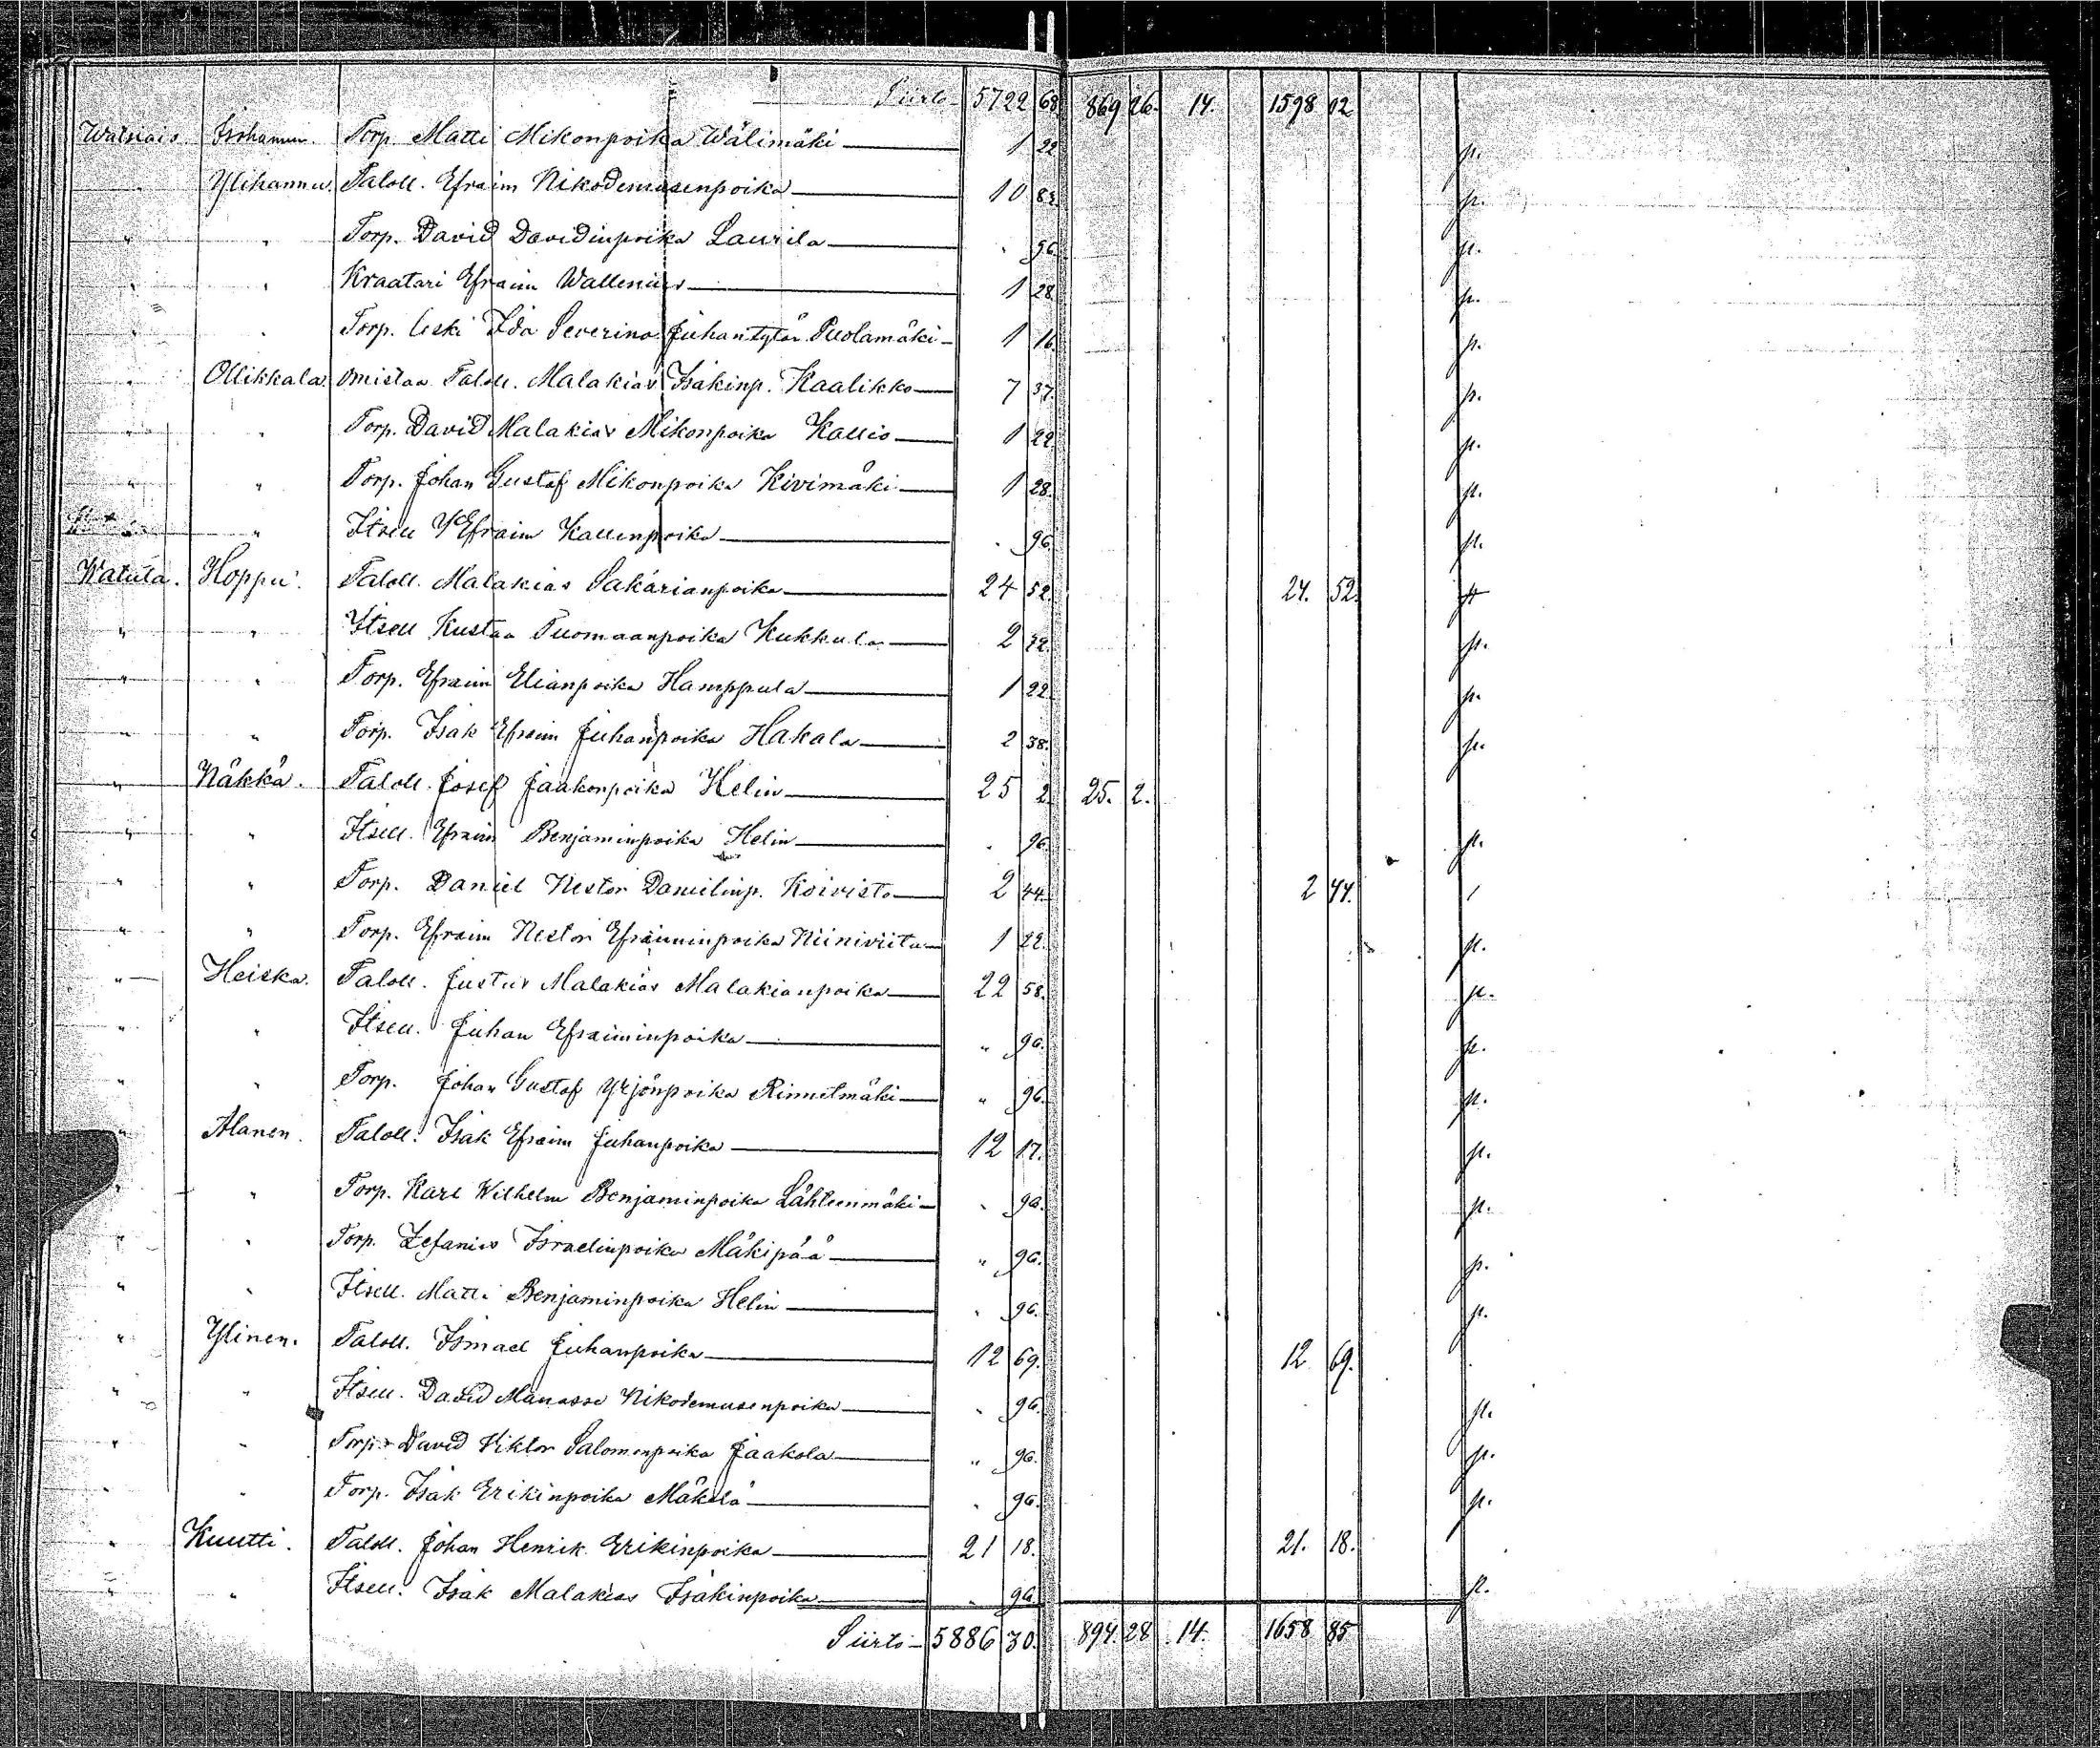 Siirto 5722 68 869 26. 14. 1598 02
Isohannu. Torp. Matti Mikonpoika Wälimäki 1 22 p.
Ylihannu. Taloll. Efraim Nikodemusenpoika 10 82. p.
" " Torp. David Davidinpoika Laurila . 96. p.
" " Kraatari Efraim Wallenius 1 28 p.
" " Torp. leski Ida Severina Juhantytär Puolamäki 1 16. p.
" Ollikkala Omistaa Taloll. Malakias Isakinp. Kaalikko 7 37. p.
" " Torp. David Malakias Mikonpoika Kallio 1 22 p.
" " Torp. Johan Gustaf Mikonpoika Kivimäki 1 28. p.
" Itsell Efraim Kallenpoika . 96 p.
Watula. Hoppu. Taloll. Malakias Sakarianpoika 24 52. 24. 52.
" " Itsell Kustaa Tuomaanpoika Kukkula 2 p.
" " Torp. Efraim Elianpoika Hamppula 1 22. p.
" " Torp. Isak Efraim Juhanpoika Hakala 2 38. p.
" Näkkä. Taloll. Josef Jaakonpoika Helin 25 2. 25. 2.
" " Itsell. Efraim Benjaminpoika Helin . 96. p.
" " Torp. Daniel Nestor Danielinp. Koivisto 2 44. 2 44. /
" " Torp. Efraim Nestor Efraiminpoika Niiniviita 1 22. p.
" Heiska. Taloll. Justus Malakias Malakianpoika 22 58. p.
" " Itsell. Juhan Efraiminpoika " 96. p.
" " Torp. Johan Gustaf Yrjönpoika Rinnetmäki " 96. p.
" Alanen. Taloll. Isak Efraim Juhanpoika 12 17. p.
" " Torp. Karl Wilhelm Benjaminpoika Lähteenmäki . 96. p.
" Torp. Zefanias Israelinpoika Mäkipää " 96. p.
" " Itsell. Matti Benjaminpoika Helin . 96. p.
" Ylinen. Taloll. Ismael Juhanpoika 12 69. 12 69.
" " Itsell. David Manasse Nikodemusenpoika . 96. p.
" " Torp. David Viktor Salomonpoika Jaakola " 96. p.
" " Torp. Isak Erikinpoika Mäkelä . 96. p.
" Kuutti. Taloll. Johan Henrik Erikinpoika 21 18. 21. 18.
" " Itsell. Isak Malakias Isakinpoika . 96. p.
Siirto 5886 30. 894. 28 14. 1658 85